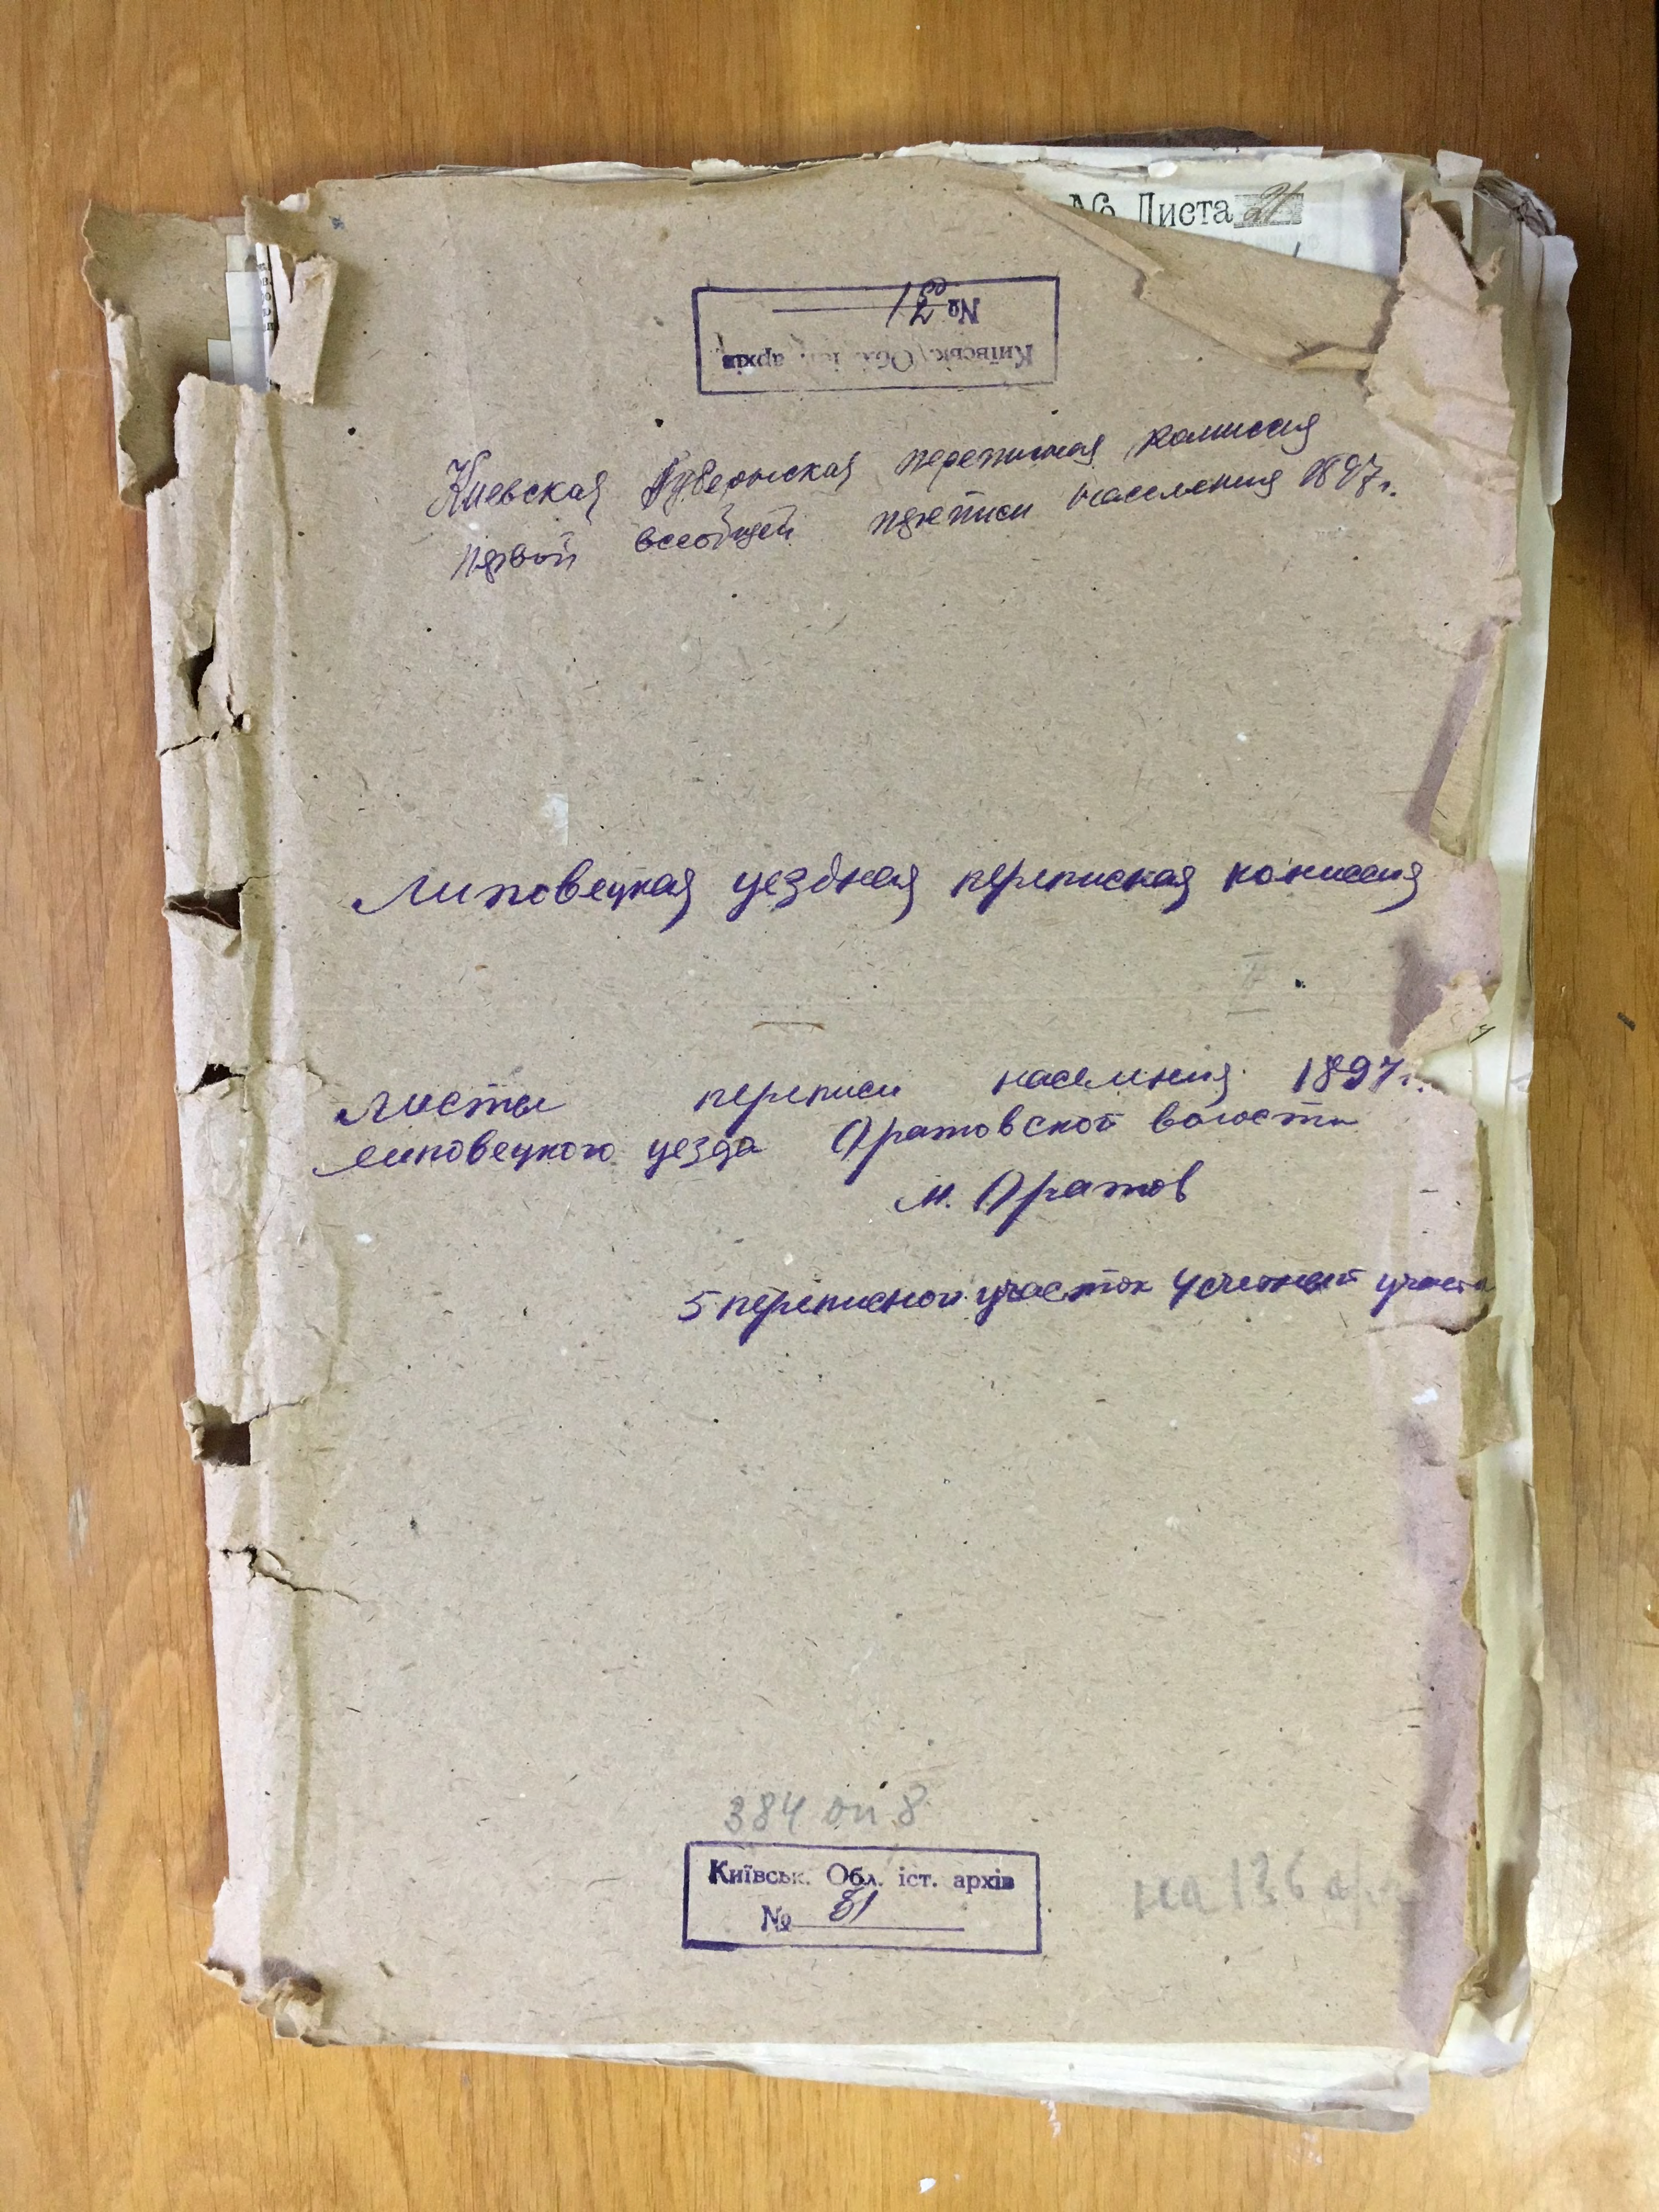 № Листа 21
Київськ. Обл. іст. архів
№
Киевская Губернская переписная комиссия
первой всеобщей переписи населения 1897 г.
Липовецкая уездная переписная комиссия
II
Листы переписи населения 1897 г.
Липовецкого уезда Оратовской волости
м. Оратов
5 переписной участок 4 счетный участо
384 оп 8
Київськ. Обл. іст. архів
№ 81
на 136